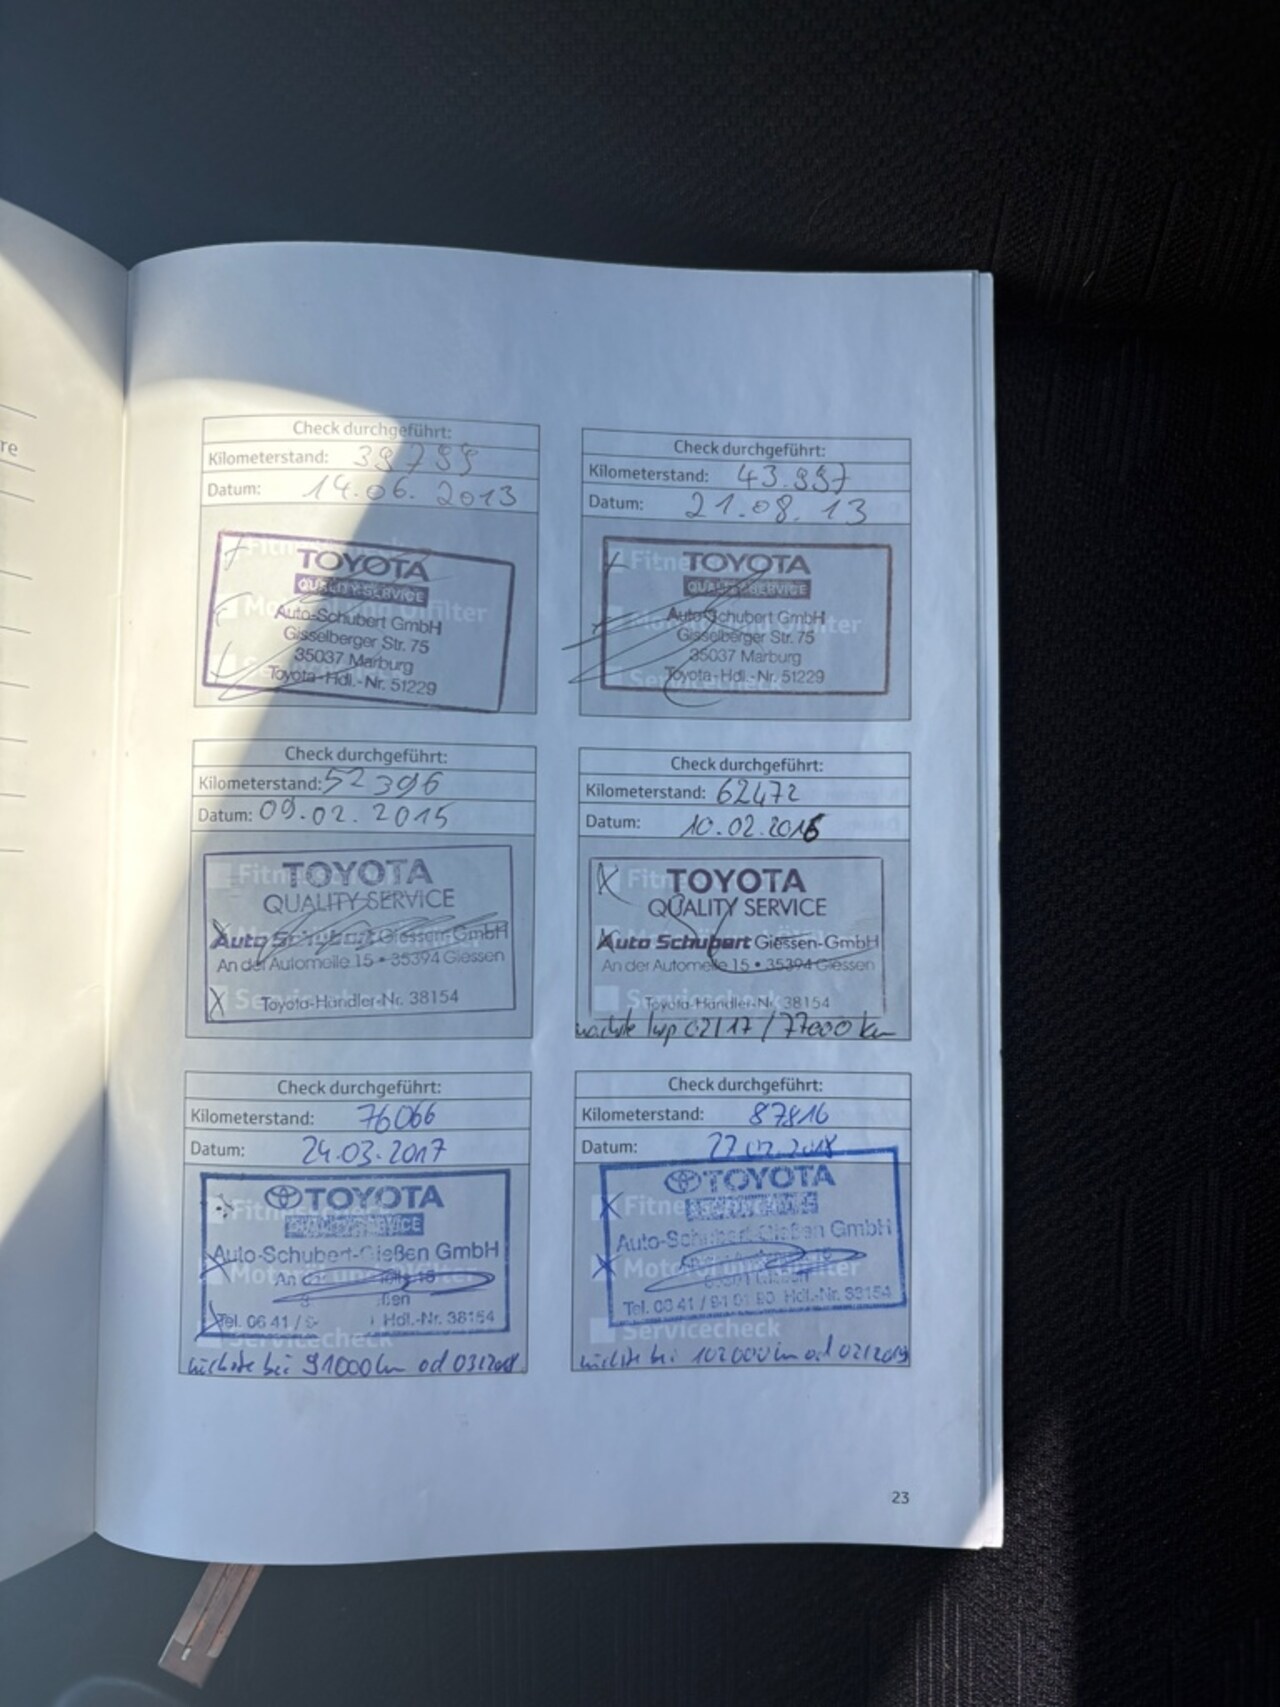 re
Check durchgeführt:
Kilometerstand: 39799
Datum: 14.06.2013
TOYOTA
QUALITY SERVICE
Auto-Schubert GmbH
Gisselberger Str. 75
35037 Marburg
Toyota-Hdl.-Nr. 51229
Check durchgeführt:
Kilometerstand: 43.997
Datum: 21.08.13
Fitne
TOYOTA
QUALITY SERVICE
Auto-Schubert GmbH
Gisselberger Str. 75
35037 Marburg
Toyota-Hdl.-Nr. 51229
Servicecheck
Check durchgeführt:
Kilometerstand: 52396
Datum: 09.02.2015
TOYOTA
QUALITY SERVICE
Auto Schubert Giessen GmbH
An der Automeile 15 • 35394 Giessen
Toyota-Händler-Nr. 38154
Check durchgeführt:
Kilometerstand: 62472
Datum: 10.02.2016
TOYOTA
QUALITY SERVICE
Auto Schubert Giessen-GmbH
An der Automeile 15 • 35394 Giessen
Toyota-Händler-Nr. 38154
nächste Insp 02/17 / 77000 km
Check durchgeführt:
Kilometerstand: 76066
Datum: 24.03.2017
TOYOTA
QUALITY SERVICE
Auto-Schubert-Gießen GmbH
Tel. 06 41 / 9 Hdl.-Nr. 38154
Servicecheck
nächste bei 91000 km od 03/2018
Check durchgeführt:
Kilometerstand: 87816
Datum: 27.02.2018
TOYOTA
Auto-Schubert-Gießen GmbH
Tel. 06 41 / Hdl.-Nr. 38154
Servicecheck
nächste bei 102000 km od 02/2019
23